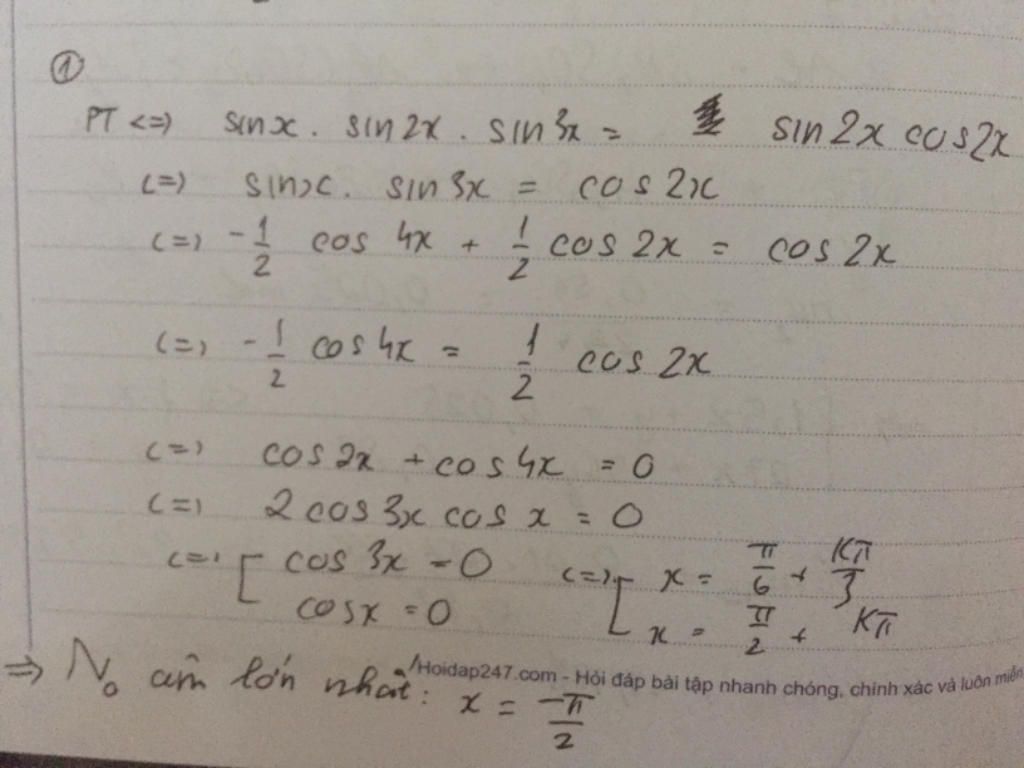 ①
PT <=> sinx . sin2x . sin3x = sin2x cos2x
<=> sinx . sin3x = cos2x
<=> -1/2 cos4x + 1/2 cos2x = cos2x
<=> -1/2 cos4x = 1/2 cos2x
<=> cos2x + cos4x = 0
<=> 2cos3x cos x = 0
<=> [ cos3x = 0 <=> [ x = π/6 + Kπ/3
cosx = 0 x = π/2 + Kπ
=> No âm lớn nhất: x = -π/2
Hoidap247.com - Hỏi đáp bài tập nhanh chóng, chính xác và luôn miễn